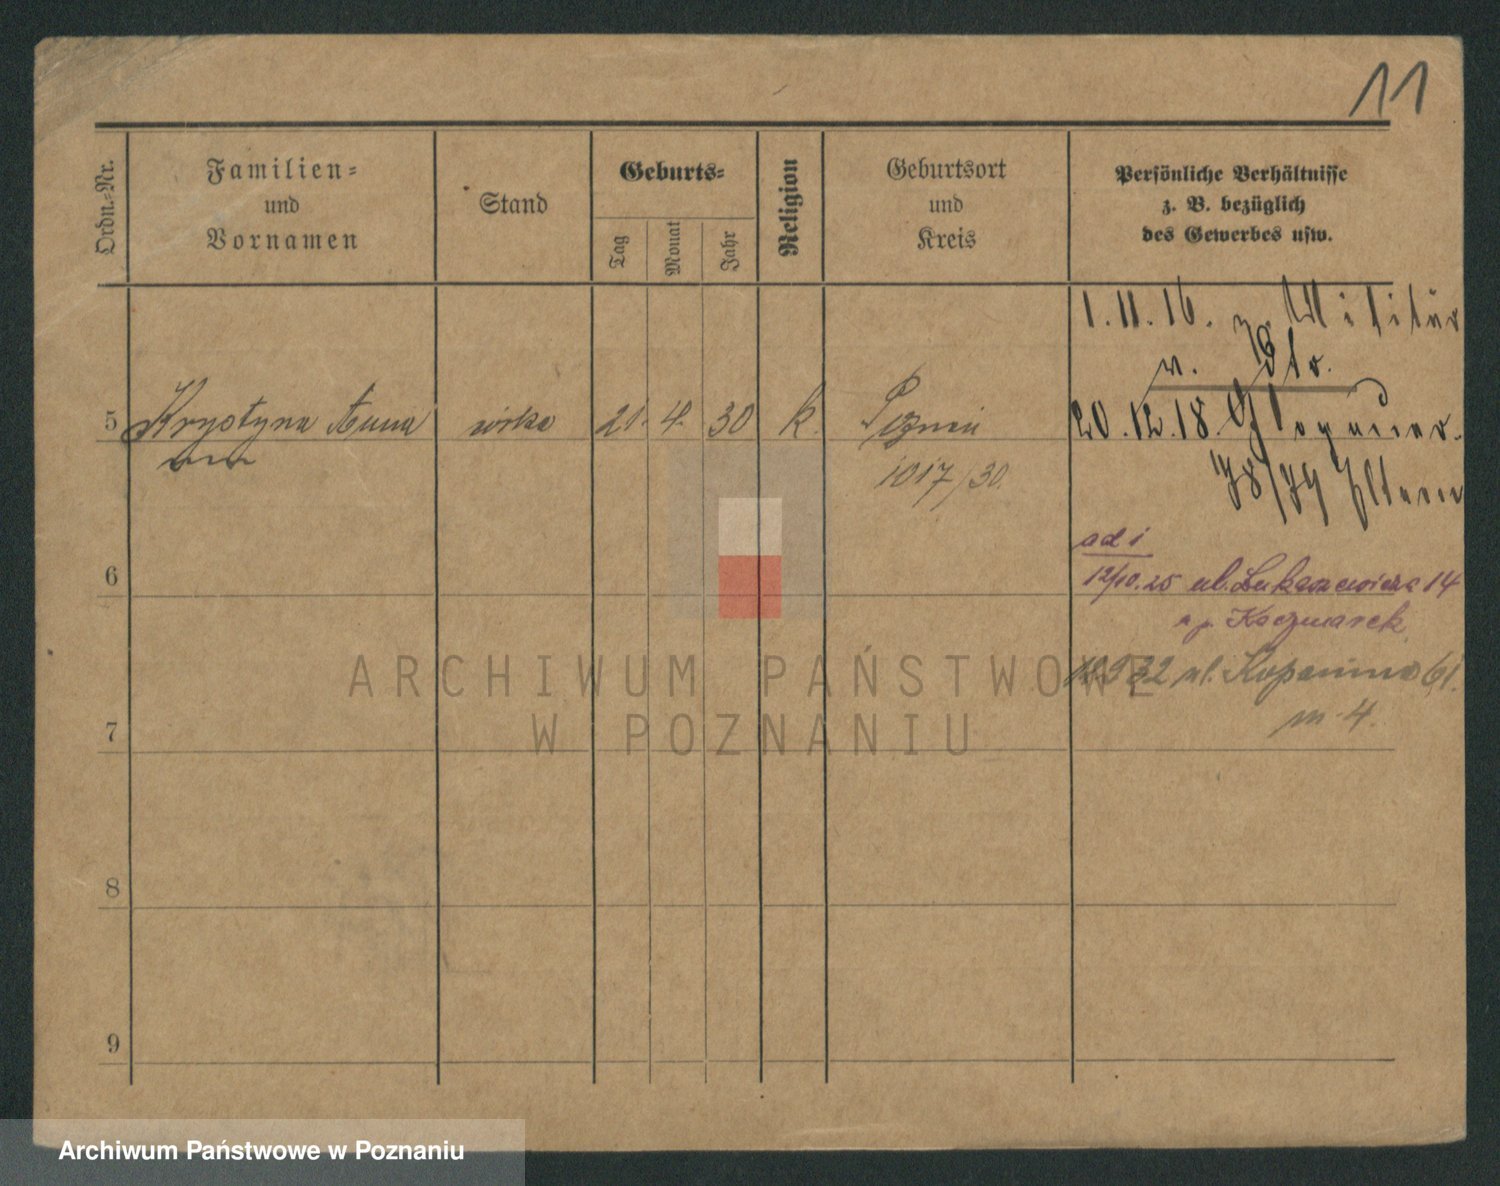 11
Ordn.-Nr.
Familien-
und
Vornamen
Stand
Geburts-
Tag
Monat
Jahr
Religion
Geburtsort
und
Kreis
Persönliche Verhältnisse
z. B. bezüglich
des Gewerbes usw.
1.11.16. z. Militär
v.
5 Krystyna Anna córka 21. 4. 30 k.
1017/30.
20.12.18. Glogauer-
78/79 Eltern
ad 1
12/10.25 ul. Łukaszewicza 14
Kaczmarek
6
ul. Kopanina 61.
m 4.
7
8
9
ARCHIWUM PAŃSTWOWE
W POZNANIU
Archiwum Państwowe w Poznaniu